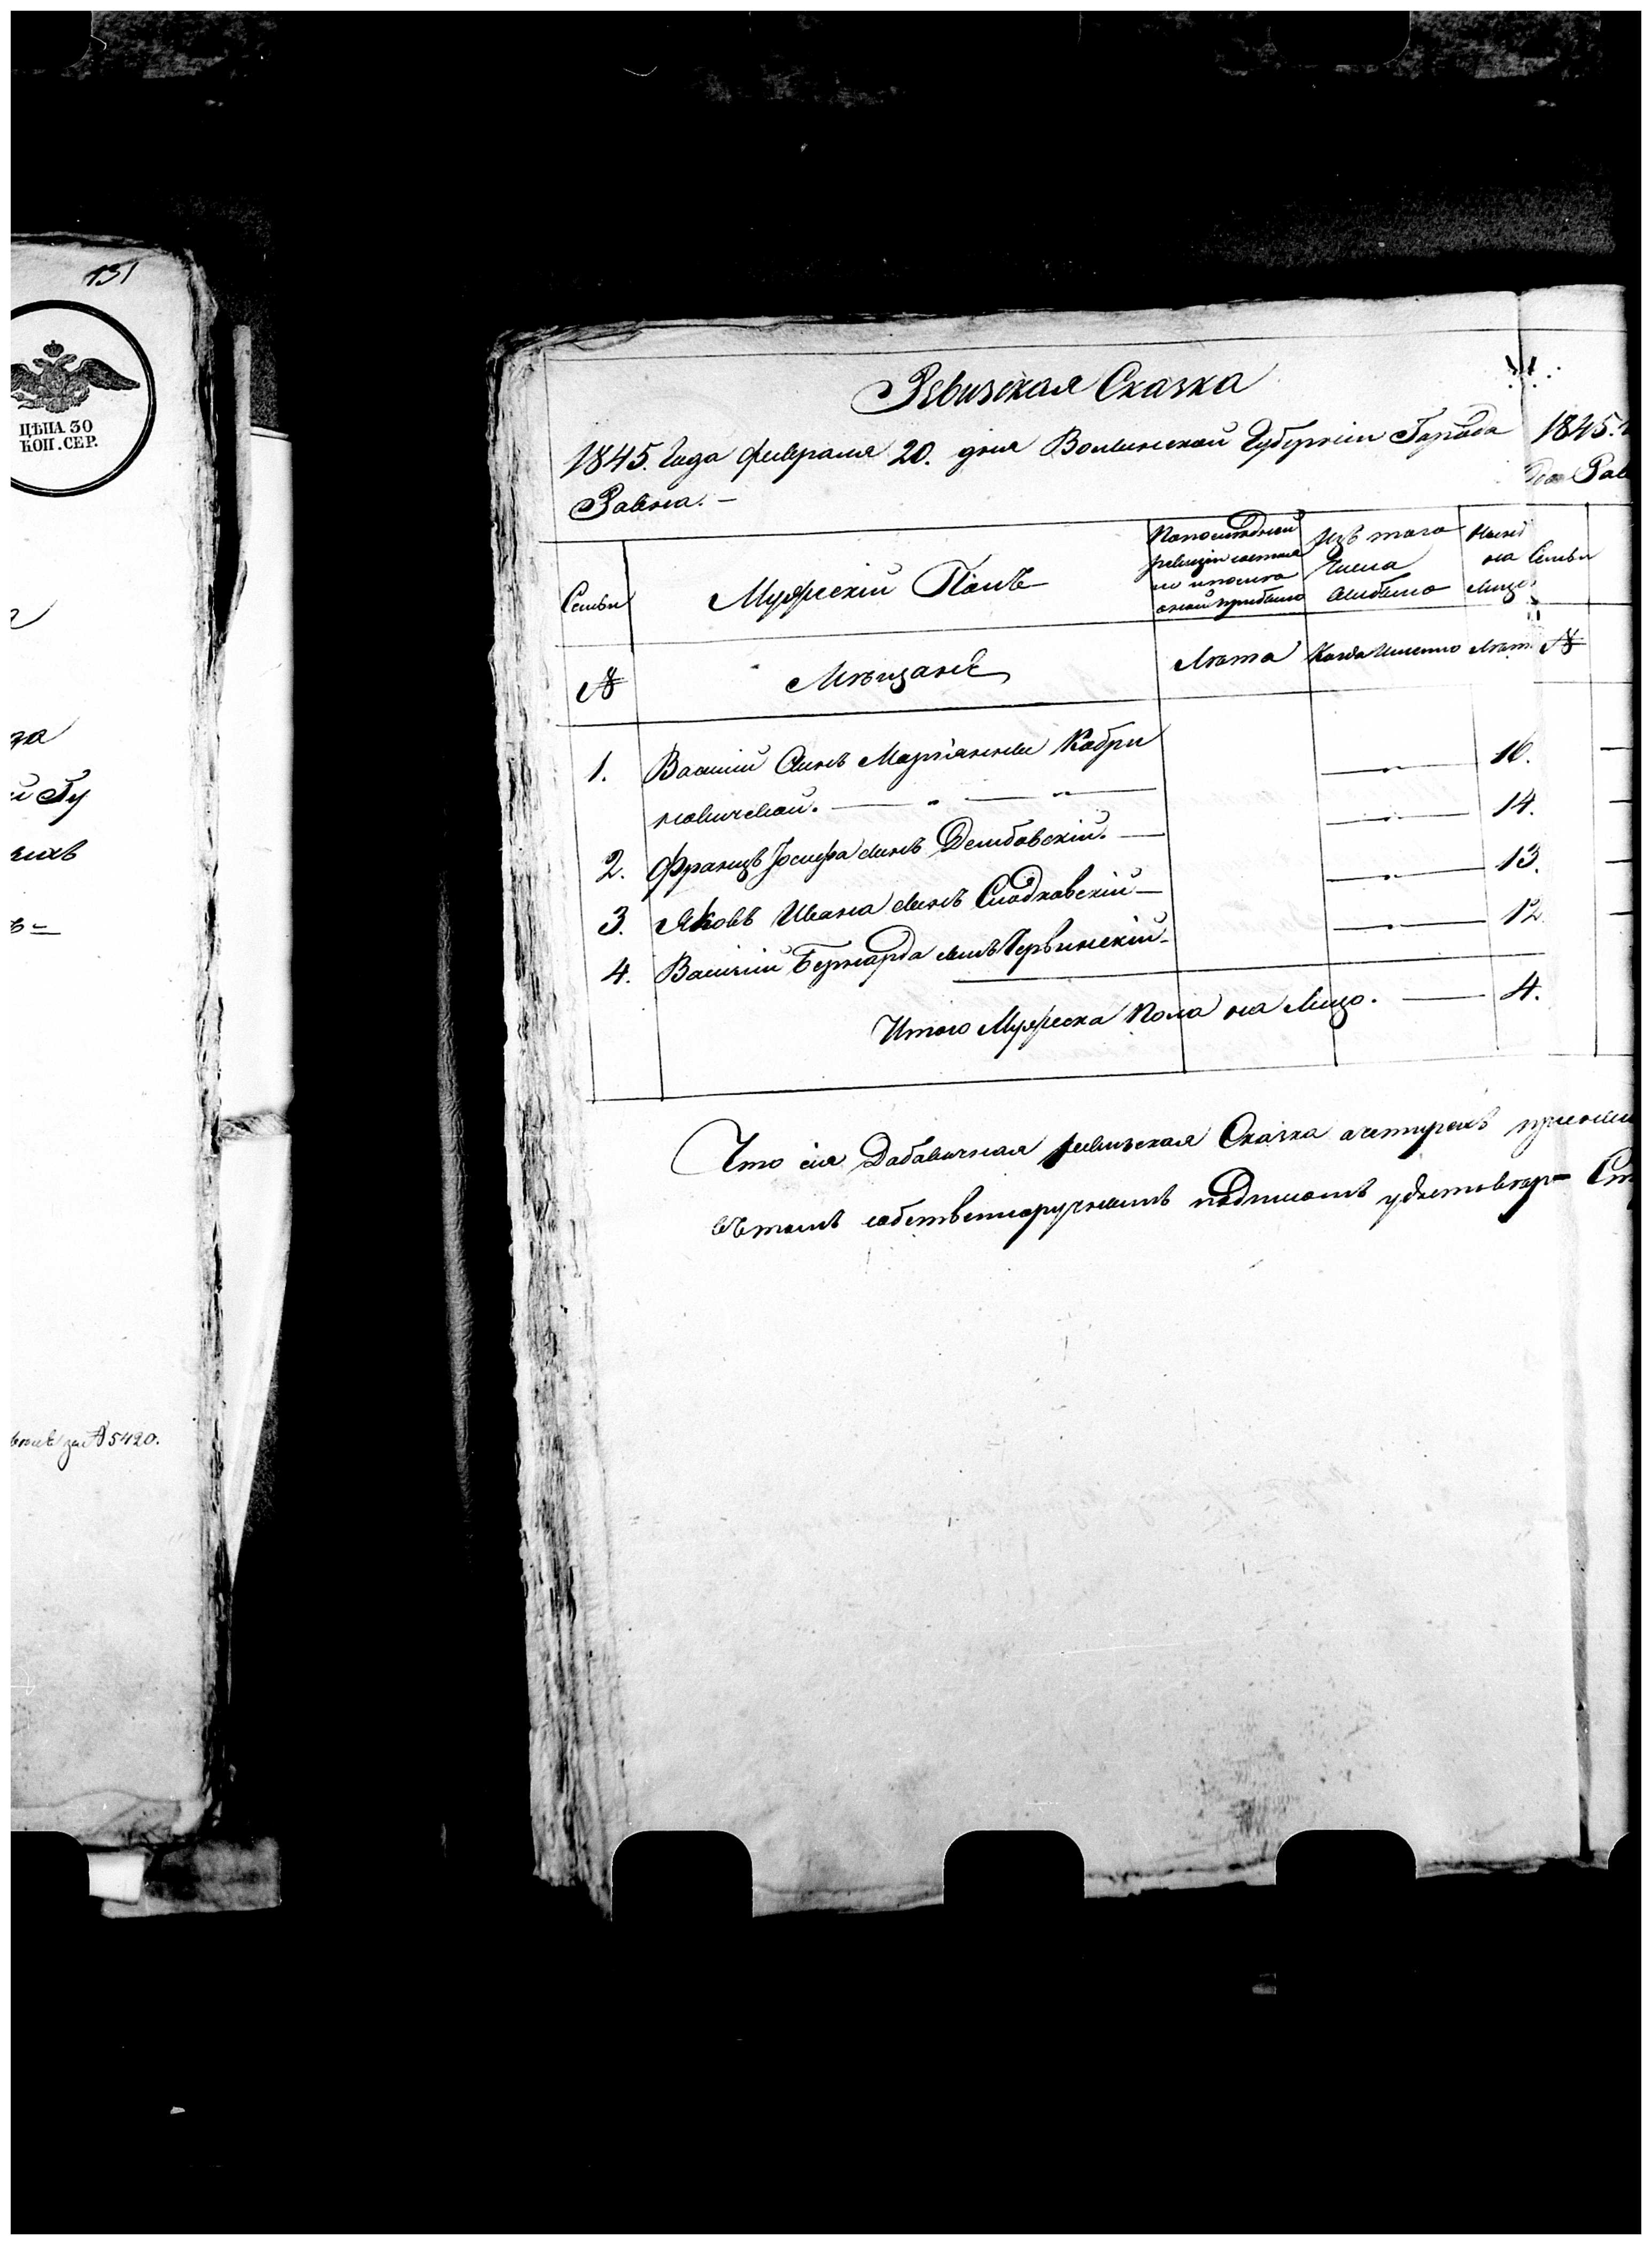 131
ЦѢНА 30
КОП. СЕР.
за
й Гу
5420.
Ревизская Сказка
1845. Года февраля 20. дня Волынской Губерніи Города
Равна. —
Семьи
Мужескій Полъ
По последней
ревизіи состоя
ло и после
оной прибыло
Изъ того
Числа
выбыло
Ныне
на
лицо
№
Мѣщане
Лѣта
Когда Именно
Лѣта
1. Василій Сынъ Маріянны Кобри
новичевой. — 16.
2. Францъ Іосифа сынъ Дембовскій. — 14.
3. Яковъ Ивана сынъ Сладковскій — 13.
4. Василій Бернарда сынъ Червинскій — 12.
Итого Мужеска Пола на Лицо. — 4.
Что сія Добавочная ревизская Сказка
въ томъ собственноручнымъ подписомъ удостовѣр=
1845.
Семьи
№